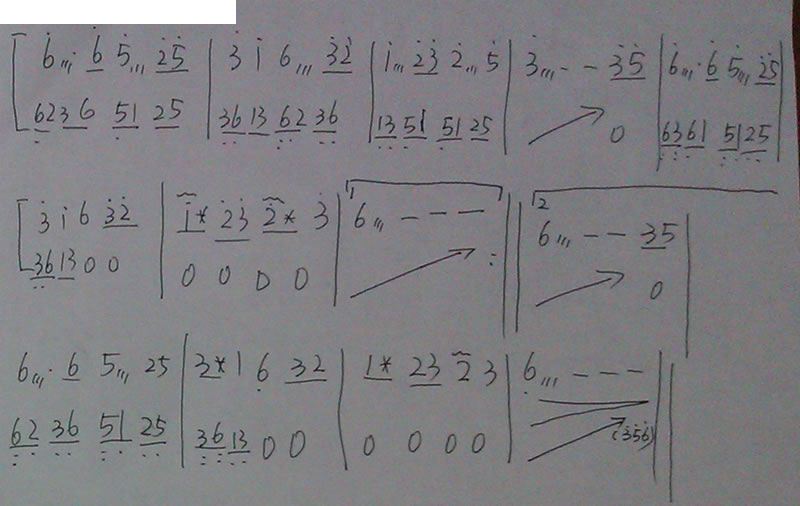 6,,, · 6 5,,, 25 | 3 1 6,,, 32 | 1,,, 23 2,,, 5 | 3,,, - - 35 | 6,,, · 6 5,,, 25
6236 51 25 | 36 13 62 36 | 13 51 51 25 | 0 | 63 61 51 25
3 1 6 32 | 1* 23 2* 3 | 1 6,,, - - - : || 2 6,,, - - 35
36 13 0 0 | 0 0 0 0 | 0
6,,, · 6 5,,, 25 | 3* 1 6 32 | 1* 23 2 3 | 6,,, - - - ||
62 36 51 25 | 36 13 0 0 | 0 0 0 0 | (356)